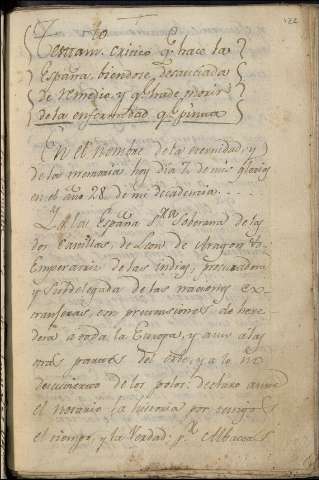 122
Testam.to critico q.e hace la
España, biendose desauciada
de remedio, y q.e ha de morir
de la enfermedad q.e pinta
En el nombre de la eternidad, y
de las memorias hoy dia 7 de mis glorias
en el año 28 de mi decadencia.
Yo la España S.ra Soberana de las
dos Castillas, de Leon de Aragon &a
Emperatriz de las indias,
y Subdelegada de las naciones ex-
trangeras, con precauciones de here-
dera a toda la Europa, y aun a las
otras partes del Orbe, y a lo
de los polos: declaro ante
el notario la historia por testigos
el tiempo, y la Verdad: y